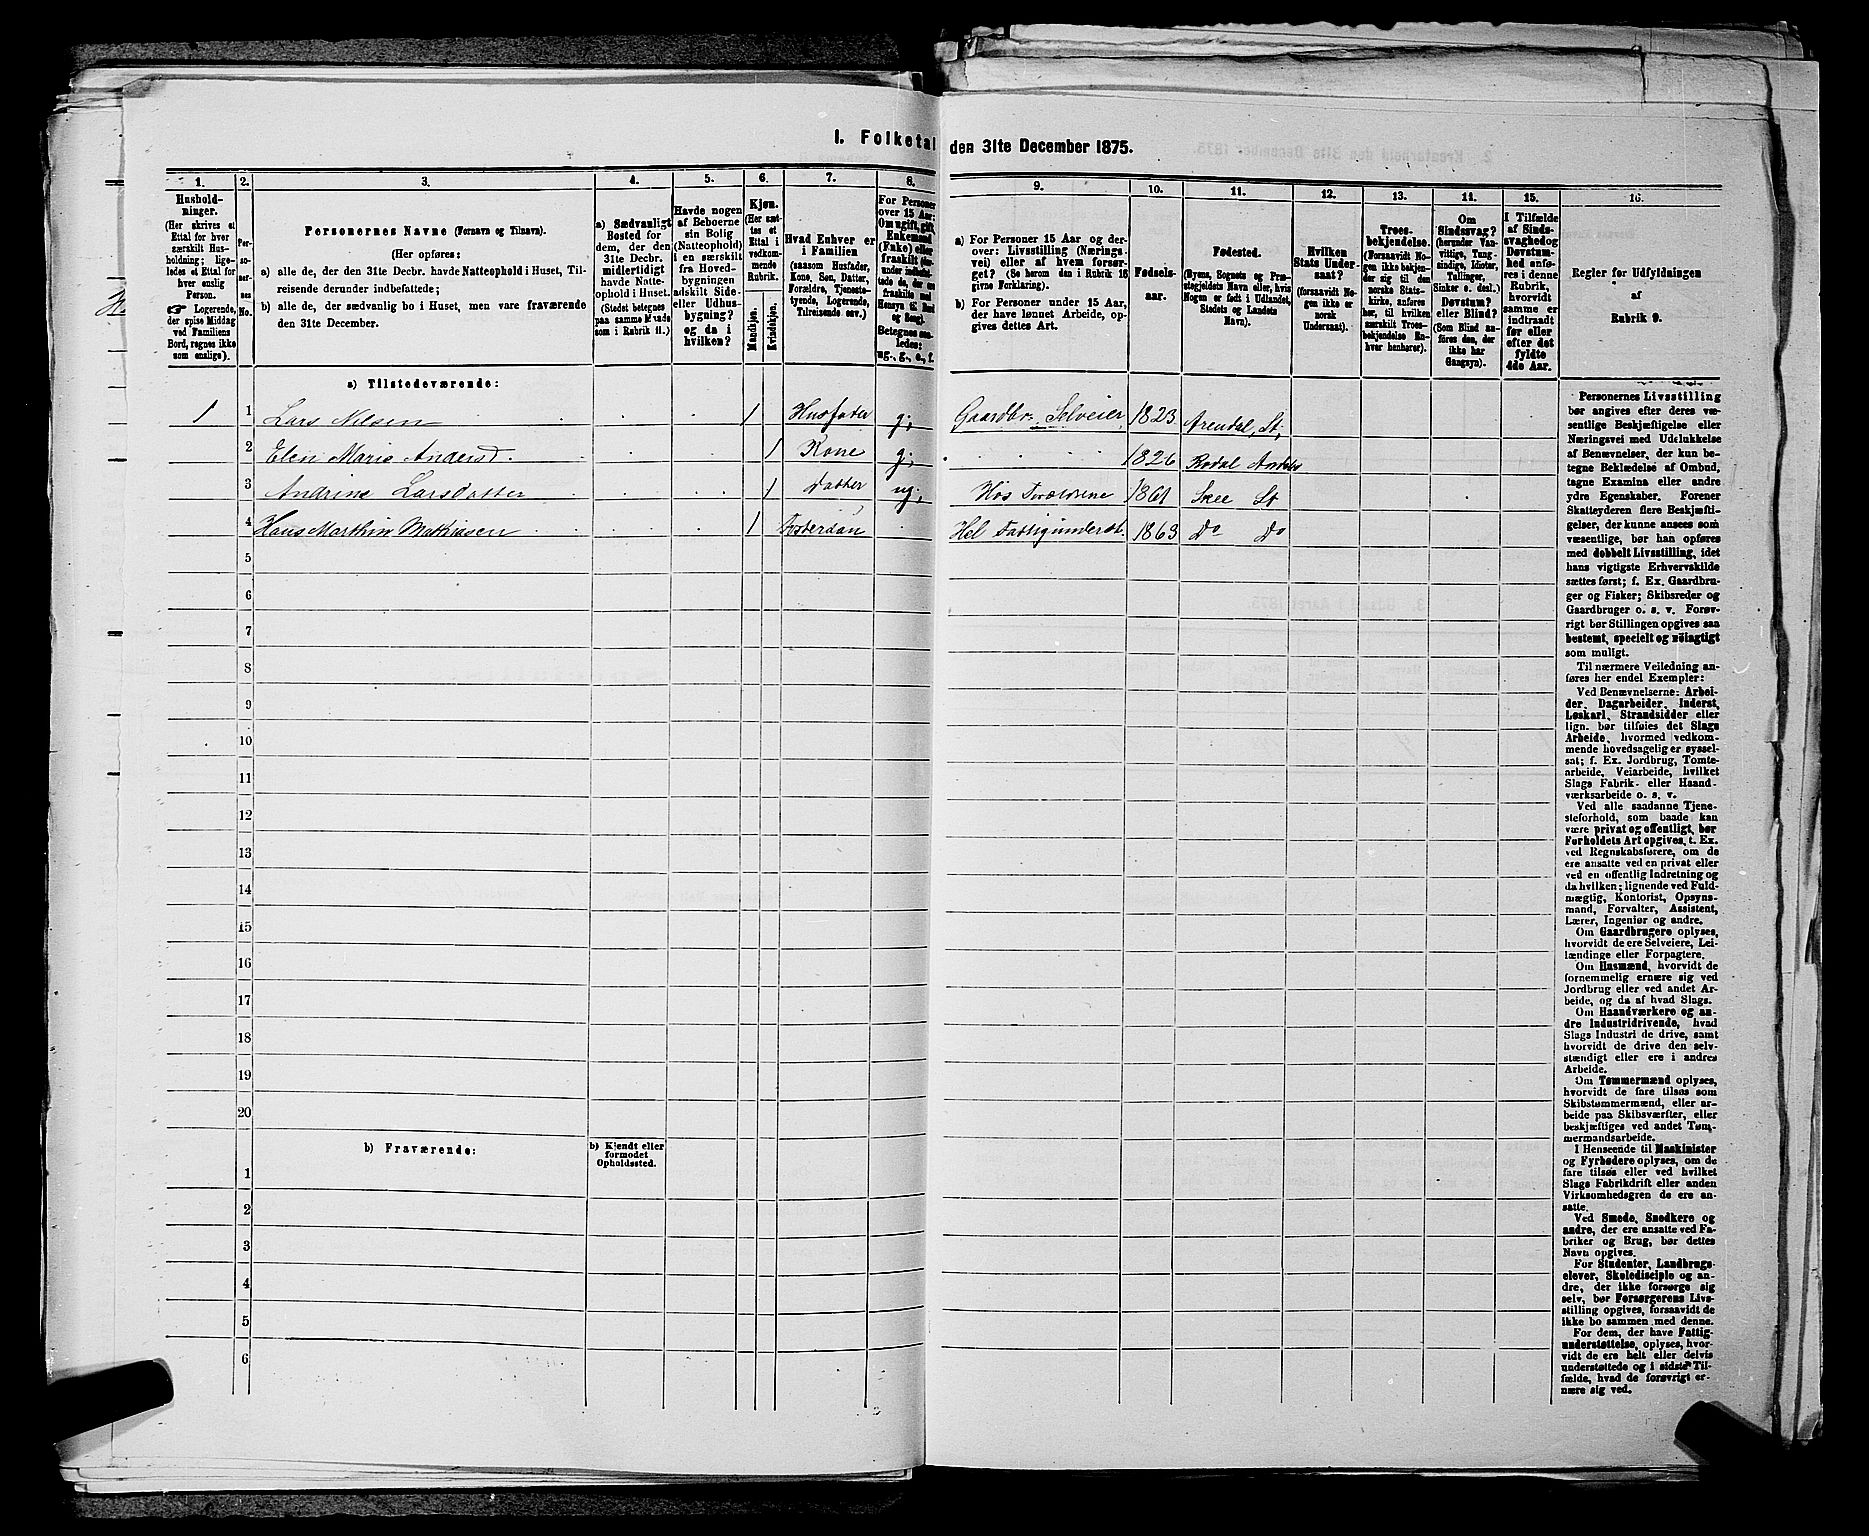 I. Folketal den 31te December 1875.
1.
Hushold-
ninger.
(Her skrives et
Ettal for hver
særskilt Hus-
holdning; lige-
ledes et Ettal for
hver enslig
Person.
☞ Logerende,
der spise Middag
ved Familiens
Bord, regnes ikke
som enslige).
2.
Per-
so-
ner-
nes
No.
3.
Personernes Navne (Fornavn og Tilnavn).
(Her opføres:
a) alle de, der den 31te Decbr. havde Natteophold i Huset, Til-
reisende derunder indbefattede;
b) alle de, der sædvanlig bo i Huset, men vare fraværende
den 31te December.
4.
a) Sædvanligt
Bosted for
dem, der den
31te Decbr.
midlertidigt
havde Natte-
ophold i Huset.
(Stedet betegnes
paa samme Maade
som i Rubrik 11.)
5.
Havde nogen
af Beboerne
sin Bolig
(Natteophold)
i en særskilt
fra Hoved-
bygningen
adskilt Side-
eller Udhus-
bygning?
og da i
hvilken?
6.
Kjøn.
(Her sæt-
tes et
Ettal i
vedkom-
mende
Rubrik.
Mandkjøn.
Kvindekjøn.
7.
Hvad Enhver er
i Familien
(saasom Husfader,
Kone, Søn, Datter,
Forældre, Tjeneste-
tyende, Logerende,
Tilreisende osv.)
8.
For Personer
over 15 Aar:
Om ugift, gift,
Enkemand
(Enke) eller
fraskilt
Betegnes saa-
ledes:
ug., g., e., f.
9.
a) For Personer 15 Aar og der-
over: Livsstilling (Nærings-
vei) eller af hvem forsør-
get? (Se herom den i Rubrik 16
givne Forklaring).
b) For Personer under 15 Aar,
der have lønnet Arbeide, op-
gives dettes Art.
10.
Fødsels-
aar.
11.
Fødested.
(Byens, Sognets og Præ-
stegjeldets Navn eller, hvis
Nogen er født i Udlandet,
Stedets og Landets
Navn).
12.
Hvilken
Stats Under-
saat?
(forsaavidt No-
gen ikke er
norsk
Undersaat).
13.
Troes-
bekjendelse.
(Forsaavidt No-
gen ikke bekjen-
der sig til den
norske Stats-
kirke, anføres
her, til hvilken
særskilt Troes-
bekjendelse En-
hver henhører).
14.
Om
Sindssvag?
(herunder Van-
vittige, Tung-
sindige, Idioter,
Tullinger,
Sinker o. desl.)
Døvstum?
eller Blind?
(Som Blind an-
føres den, der
ikke har
Gangsyn).
15.
I Tilfælde
af Sinds-
svaghed og
Døvstum-
hed anfø-
res i denne
Rubrik,
hvorvidt
samme er
indtraadt
før eller
efter det
fyldte
4de Aar.
16.
Regler for Udfyldningen
af
Rubrik 9.
a) Tilstedeværende:
1 1 Lars Nilsen 1 Husfader g; Gaardbr. Selveier, 1823 Arendal, St;
2 Elen Marie Andersd. 1 Kone g; 1826
3 Andrine Larsdatter 1 Datter ug; 1861 Skee St
4 Hans Marthin Mathiasen 1 Hel Fattigunderst. 1863 Do Do
5
6
7
8
9
10
11
12
13
14
15
16
17
18
19
20
b) Fraværende:
b) Kjendt eller
formodet
Opholdssted.
1
2
3
4
5
6
Personernes Livsstilling
bør angives efter deres væ-
sentlige Beskjæftigelse eller
Næringsvei med Udelukkelse
af Benævnelser, der kun be-
tegne Beklædelse af Ombud,
tagne Examina eller andre
ydre Egenskaber. Forener
Skatteyderen flere Beskjæfti-
gelser, der kunne ansees som
væsentlige, bør han opføres
med dobbelt Livsstilling, idet
hans vigtigste Erhvervskilde
sættes først; f. Ex. Gaardbru-
ger og Fisker; Skibsreder og
Gaardbruger o. s. v. Forøv-
rigt bør Stillingen opgives saa
bestemt, specielt og nøiagtigt
som muligt.
Til nærmere Veiledning an-
føres her endel Exempler:
Ved Benævnelserne: Arbei-
der, Dagarbeider, Inderst,
Løskarl, Strandsidder eller
lign. bør tilføies det Slags
Arbeide, hvormed vedkom-
mende hovedsagelig er syssel-
sat; f. Ex. Jordbrug, Tomte-
arbeide, Veiarbeide, hvilket
Slags Fabrik- eller Haand-
værksarbeide o. s. v.
Ved alle saadanne Tjene-
steforhold, som baade kan
være privat og offentligt, bør
Forholdets Art opgives, t. Ex.
ved Regnskabsførere, om de
ere ansatte ved en privat eller
ved en offentlig Indretning og
da hvilken; lignende ved Fuld-
mægtig, Kontorist, Opsyns-
mand, Forvalter, Assistent,
Lærer, Ingeniør og andre.
Om Gaardbrugere oplyses,
hvorvidt de ere Selveiere, Lei-
lændinge eller Forpagtere.
Om Husmænd, hvorvidt de
fornemmelig ernære sig ved
Jordbrug eller ved andet Ar-
beide, og da af hvad Slags.
Om Haandværkere og an-
dre Industridrivende, hvad
Slags Industri de drive, samt
hvorvidt de drive den selv-
stændigt eller ere i andres
Arbeide.
Om Tømmermænd oplyses,
hvorvidt de fare tilsøs som
Skibstømmermænd, eller ar-
beide paa Skibsværfter, eller
beskjæftiges ved andet Tøm-
mermandsarbeide.
I Henseende til Maskinister
og Fyrbødere oplyses, om de
fare tilsøs eller ved hvilket
Slags Fabrikdrift eller anden
Virksomhedsgren de ere an-
satte.
Ved Smede, Snedkere og
andre, der ere ansatte ved Fa-
briker og Brug, bør dettes
Navn opgives.
For Studenter, Landbrugs-
elever, Skoledisciple og an-
dre, der ikke forsørge sig
selv, bør Forsørgerens Livs-
stilling opgives, forsaavidt de
ikke bo sammen med denne.
For dem, der have Fattig-
understøttelse, oplyses, hvor-
vidt de ere helt eller delvis
understøttede og i sidste Til-
fælde, hvad de forøvrigt er-
nære sig ved.